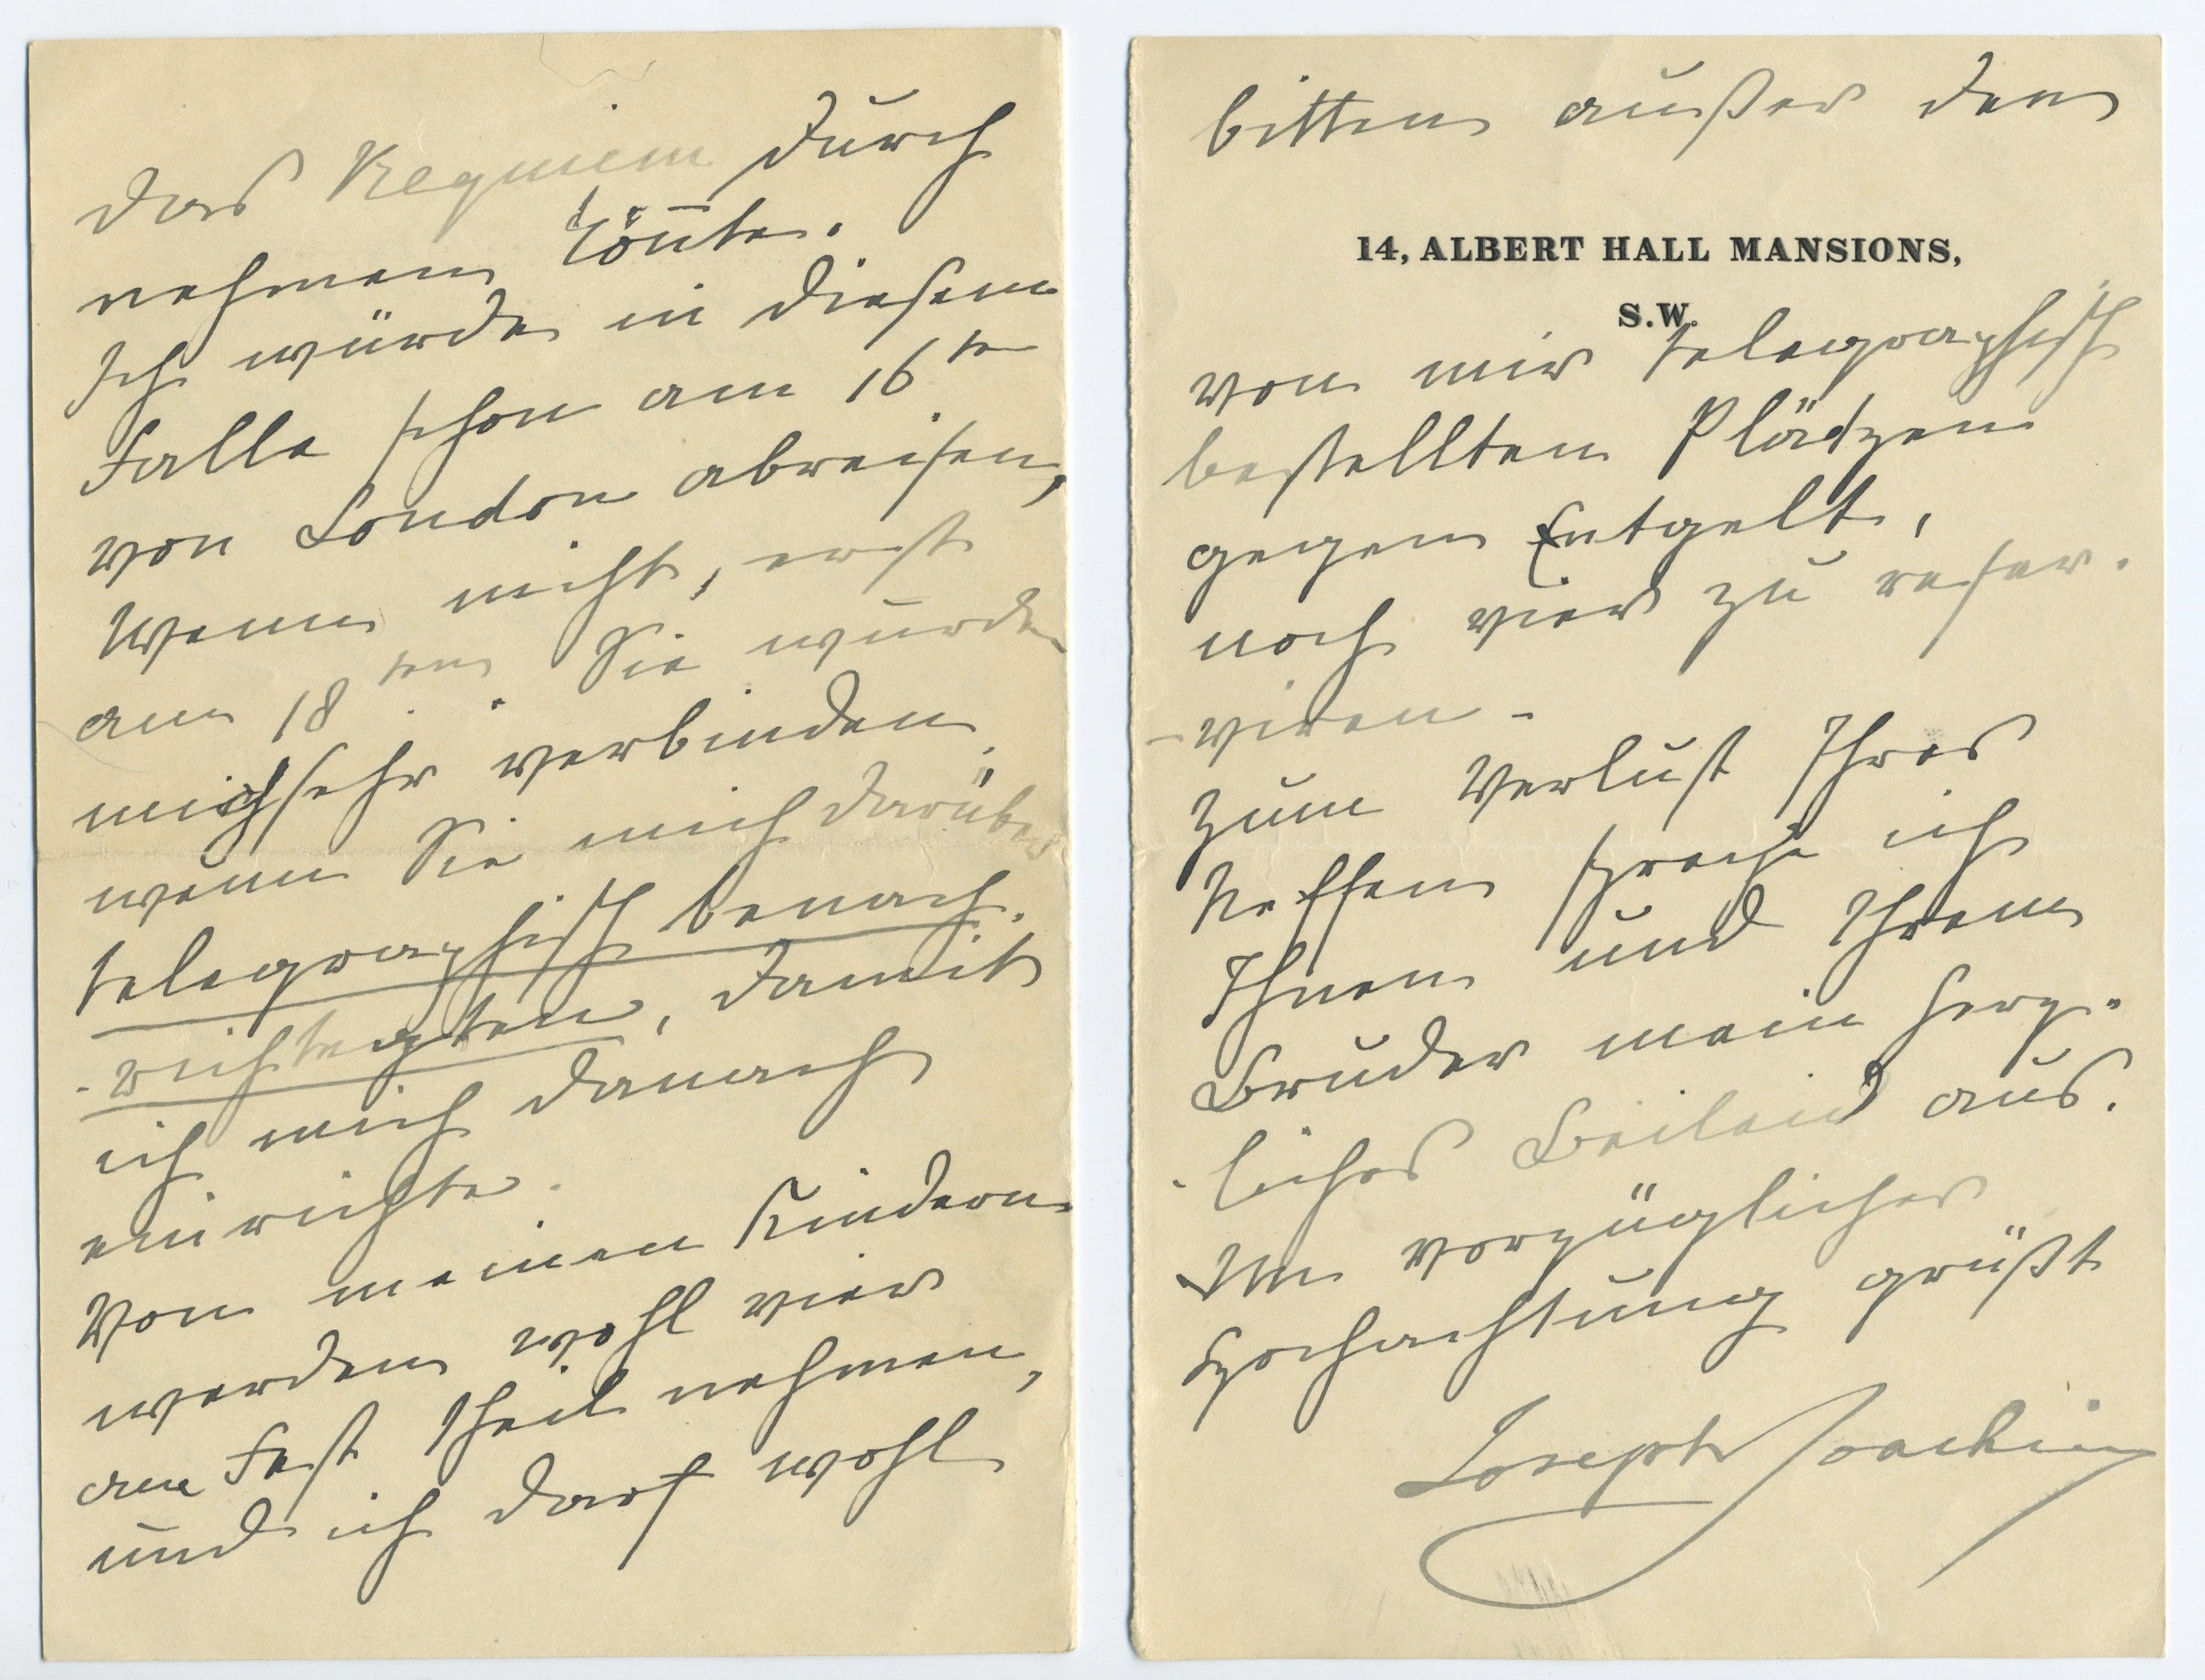 das Requiem durch
nehmen köñte.
Ich würde in diesem
Falle schon am 16te
von London abreisen,
wenn nicht, erst
am 18ten. Sie würden
mich sehr verbinden,
wenn Sie mich darüber
telegraphisch benach-
-richtigten, damit
ich mich danach
einrichte.
Von meinen Kindern
werden wohl vier
am Fest theil nehmen,
und ich darf wohl
bitten außer den
14, ALBERT HALL MANSIONS,
S.W.
von mir telegraphisch
bestellten Plätzen
gegen Entgelt,
noch vier zu reser-
-viren -
Zum Verlust Ihres
Neffen spreche ich
Ihnen und Ihrem
Bruder mein herz-
-liches Beileid aus.
In vorzüglicher
Hochachtung grüßt
Joseph Joachim